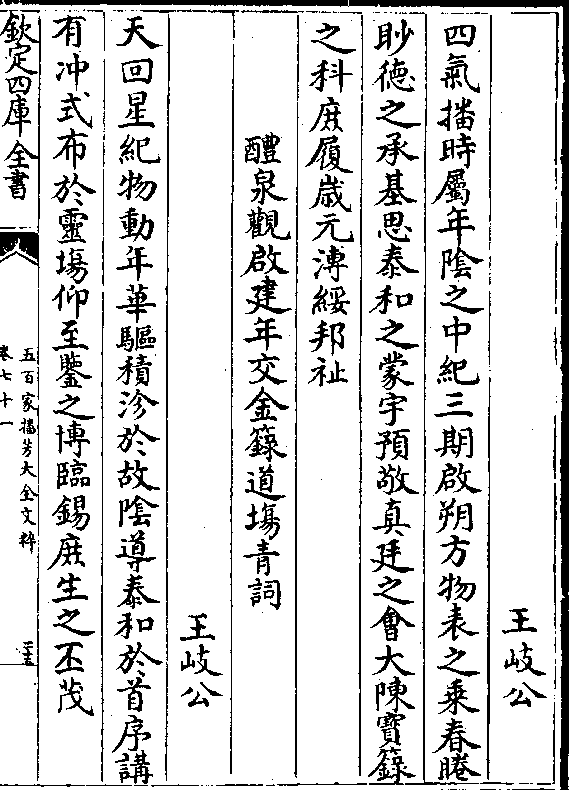 王岐公
四氣播時屬年陰之中紀三期啟朔方物表之乗春睠
眇德之承基思泰和之蒙宇預敬真廷之會大陳寶籙
之科庶履歳元溥綏邦祉
醴泉觀啟建年交金籙道塲青詞
王岐公
天回星紀物動年華驅積沴於故陰導泰和於首序講
有冲式布於靈塲仰至鑒之博臨錫庶生之丕茂
欽定四庫全書
五百家播芳大全文粹
卷七十一